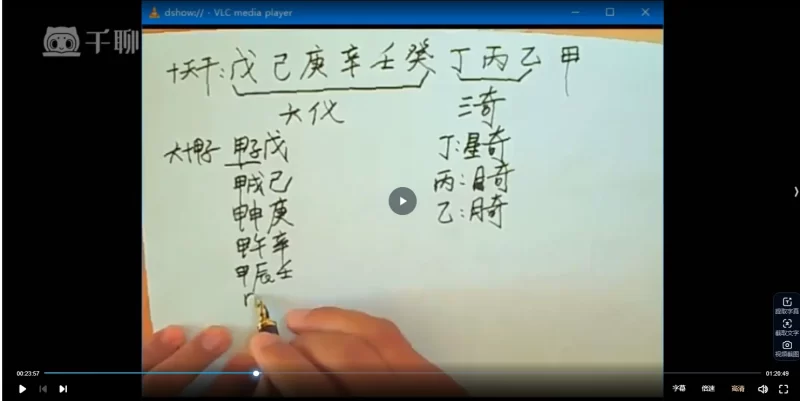 dshow:// - VLC media player
千聊
十天干:戊己庚辛壬癸 丁丙乙 甲
六仪 三奇
六十甲子 甲子戊 丁:星奇
甲戌己 丙:月奇
甲申庚 乙:日奇
甲午辛
甲辰壬
提取字幕
截取文字
视频截图
00:23:57
01:20:49
字幕 倍速 高清